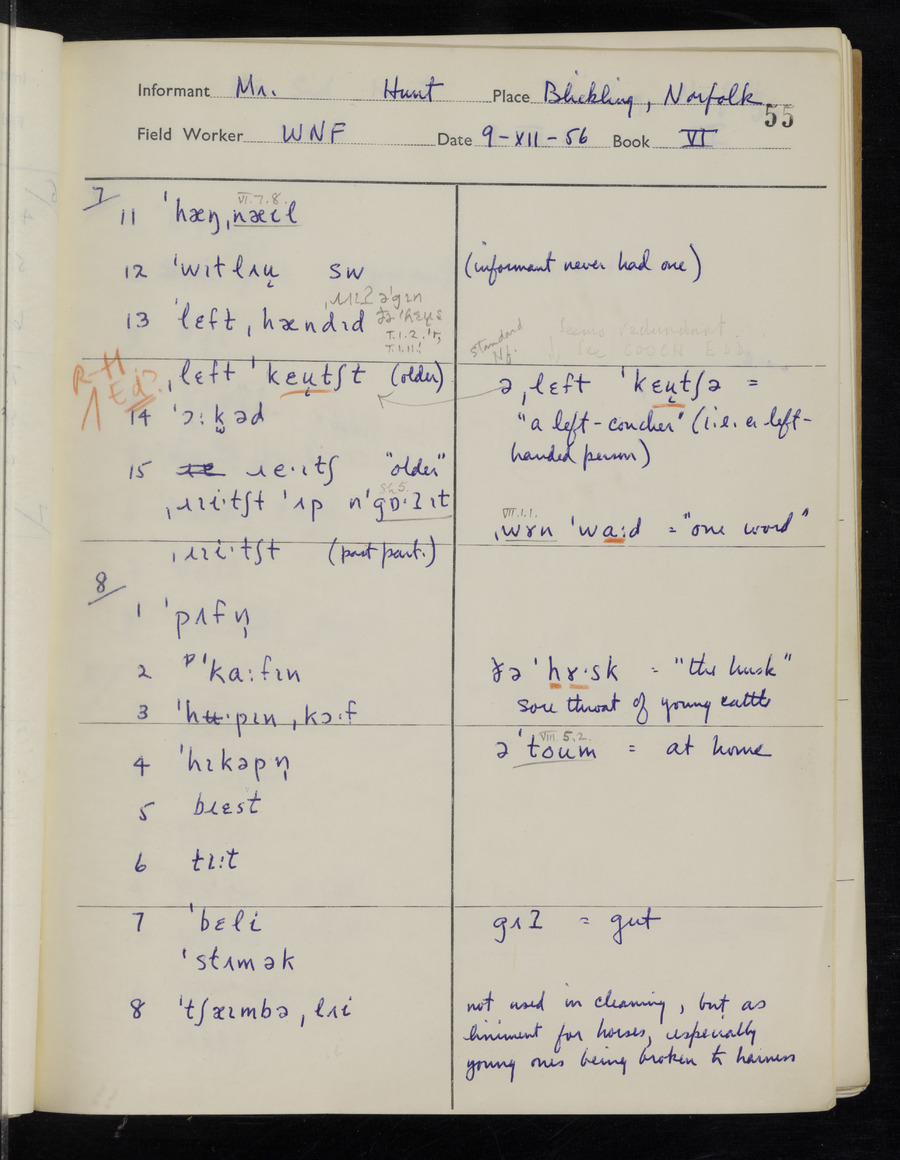 Informant Mr. Hunt Place Blickling, Norfolk
55
Field Worker WNF Date 9-XII-56 Book VI
7
VI.7.8.
11 ˈhæŋˌnæɪl
12 ˈwɪtlʌu̜ SW (informant never had one)
13 ˈlɛft ˌhændɪd
T.1.2.
T.1.11.
standard
Nf.
Seems redundant
See COOCH EDD
R-H
Ed?
ˌlɛft ˈkɛu̜tʃt (older) ə ˌlɛft ˈkɛu̜tʃə =
"a left-coucher" (i.e. a left-
handed person)
14 ˈɔ:k̬əd
15 ɹe·ɪtʃ "older"
Sh 5.
ˌɹɪi·tʃt ˈʌp n ˈgɒ·ʔ ɪt
VII.1.1.
ˌwʌn ˈwa:d = "one word"
ˌɹɪi·tʃt (past part.)
8
1 ˈpʌfn̩
2 ˈka:fɪn ðə ˈhɤ·sk = "the husk"
sore throat of young cattle
3 ˈhʉ·pɪn ˌkɔ·f
VIII.5.2.
ə ˈtoum = at home
4 ˈhɪkəpn̩
5 bɪɛst
6 tɪ:t
7 ˈbɛli gʌʔ = gut
ˈstʌmək
8 ˈtʃæɪmbə ˌlʌi not used in cleaning, but as
liniment for horses, especially
young ones being broken to harness